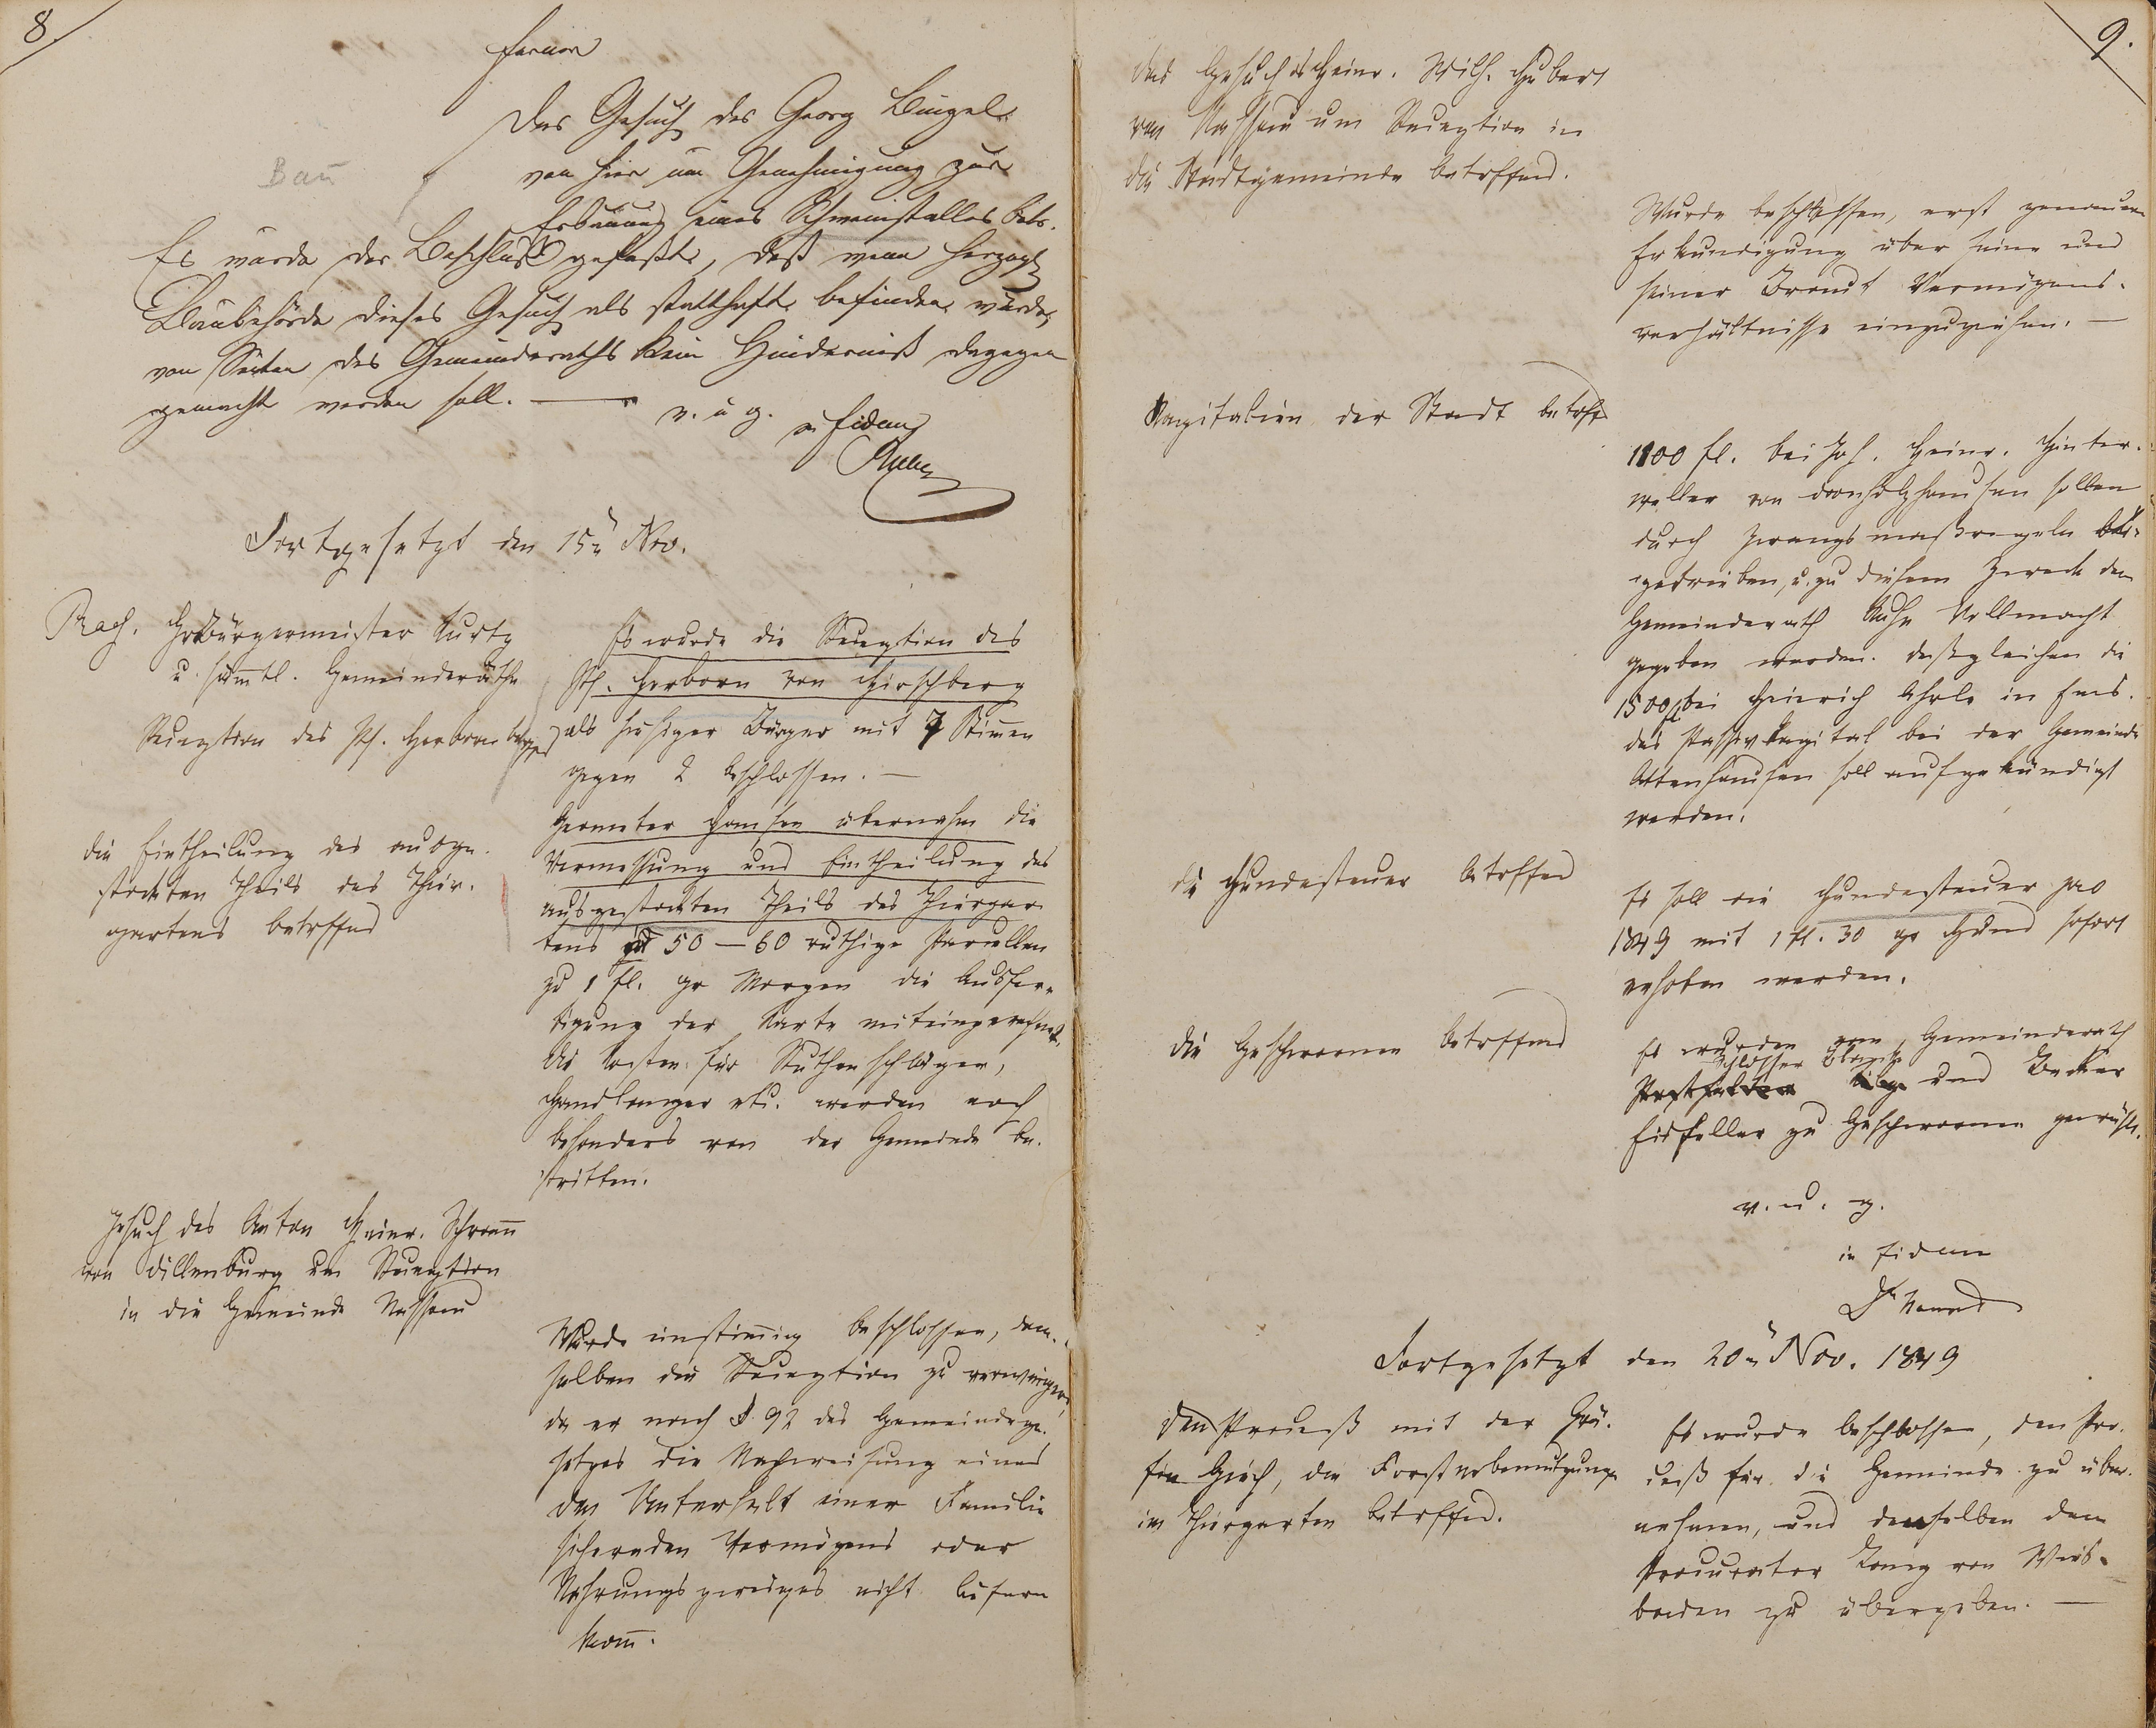 8.
ferner
Das Gesuch des Georg Bingel
von hier um Genehmigung zur
Bau
Erbauung eines Schweinstalles betr.
Es wurde der Beschluß gefaßt, daß wenn Herzogl.
Baubehörde dieses Gesuch als statthaft befinden würde,
von Seiten des Gemeinderaths kein Hinderniß dagegen
gemacht werden soll. —
v. u. g.
in fidem
Fortgesetzt den 15n Nov.
Praes. Hr Bürgermeister Kurtz
u. sämtl. Gemeinderäthe
Reception des Ph. Herborn betreffd
Es wurde die Reception des
Ph. Herborn von Hirschberg
als hiesiger Bürger mit 7 Stimen
gegen 2 beschlossen. —
die Eintheilung des ausge-
stockten Theils des Thier-
gartens betreffend
Geometer Hansen übernahm die
Vermessung und Eintheilung des
ausgestockten Theils des Thiergar-
tens in 50 — 60 ruthige Parcellen
zu 1 fl. pr Morgen die Ausfer-
tigung der Karte miteingerechnet.
Die Kosten für Ruthenschläger,
Handlanger etc. werden noch
besonders von der Gemeinde be-
stritten.
Gesuch des Anton Heinr. Schramm
von Dillenburg um Reception
in die Gemeinde Nassau
Wurde einstimig beschlossen, dem-
selben die Reception zu verweigern,
da er nach § 92 des Gemeindege-
setzes die Nachweisung eines
den Unterhalt einer Familie
sichernden Vermögens oder
Nahrungszweiges nicht liefern
kann.
9.
das Gesuch des Heinr. Wilh. Hubert
von Nassau um Reception in
die Stadtgemeinde betreffend.
Wurde beschlossen, erst genauere
Erkundigung über seine und
seiner Braut Vermögens-
verhältnisse einzuziehen. —
Kapitalien der Stadt betreff
1100 fl. bei Joh. Heinr. Hinter-
weller von Dornholzhausen sollen
durch Zwangsmaßregeln bei-
getrieben, u. zu diesem Zweck dem
Gemeinderath Kuhn Vollmacht
gegeben werden. deßgleichen die
1500 fl bei Heinrich in Ems.
das Passivkapital bei der Gemeinde
Attenhausen soll aufgekündigt
werden.
die Hundesteuer betreffend
Es soll die Hundesteuer pro
1849 mit 1 fl. 30 pr Hund sofort
erhoben werden.
die Geschworenen betreffend
Es wurden von Gemeinderath
Schlosser und Becker
Eidfeller zu Geschworenen gewählt.
v. u. g.
in fidem
Fortgesetzt den 20n Nov. 1849
den Proceß mit der Grä-
fin Giech, die Forstnebennutzungen
im Thiergarten betreffend.
Es wurde beschlossen, den Pro-
ceß für die Gemeinde zu über-
nehmen, und denselben dem
Procurator Lang von Wies-
baden zu übergeben. —